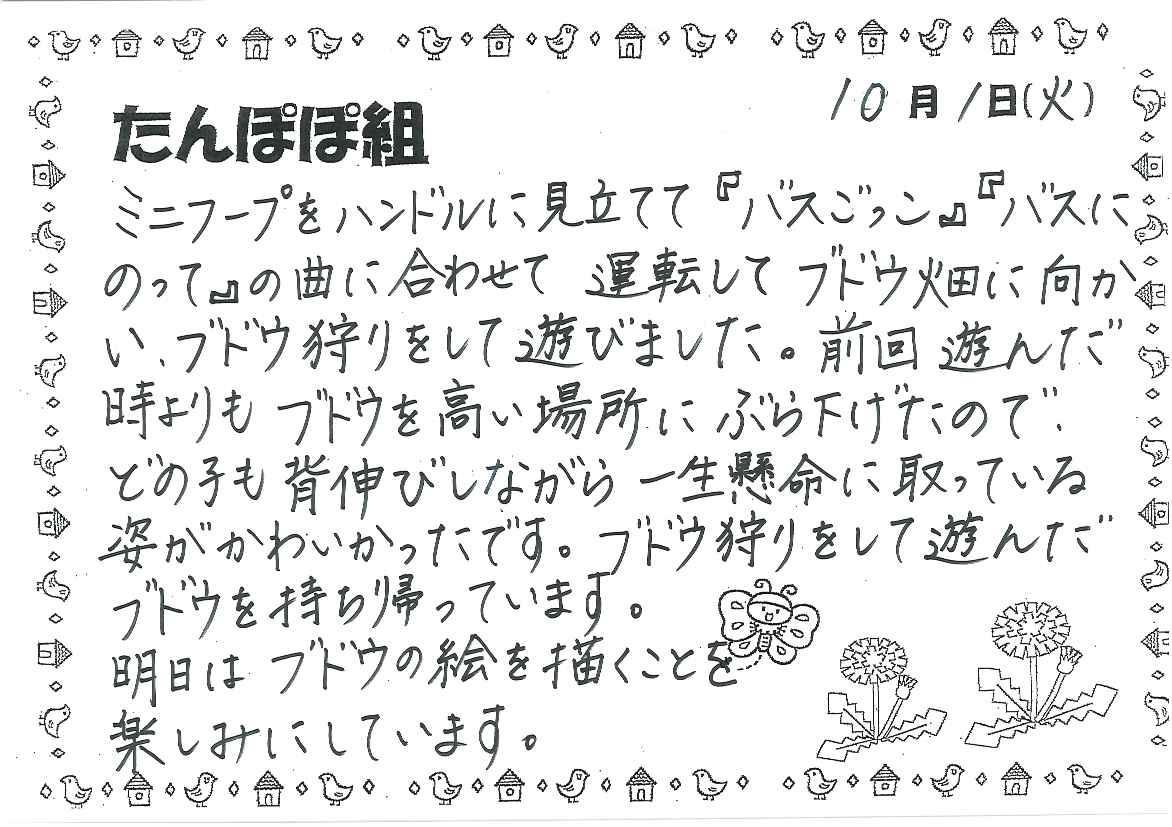 10月1日(火)
たんぽぽ組
ミニフープをハンドルに見立てて『バスごっこ』『バスに
のって』の曲に合わせて 運転して ブドウ畑に向か
い、ブドウ狩りをして遊びました。前回遊んだ
時よりも ブドウを高い場所に ぶら下げたので、
どの子も背伸びしながら 一生懸命に取っている
姿がかわいかったです。ブドウ狩りをして遊んだ
ブドウを持ち帰っています。
明日は ブドウの絵を描くことを
楽しみにしています。